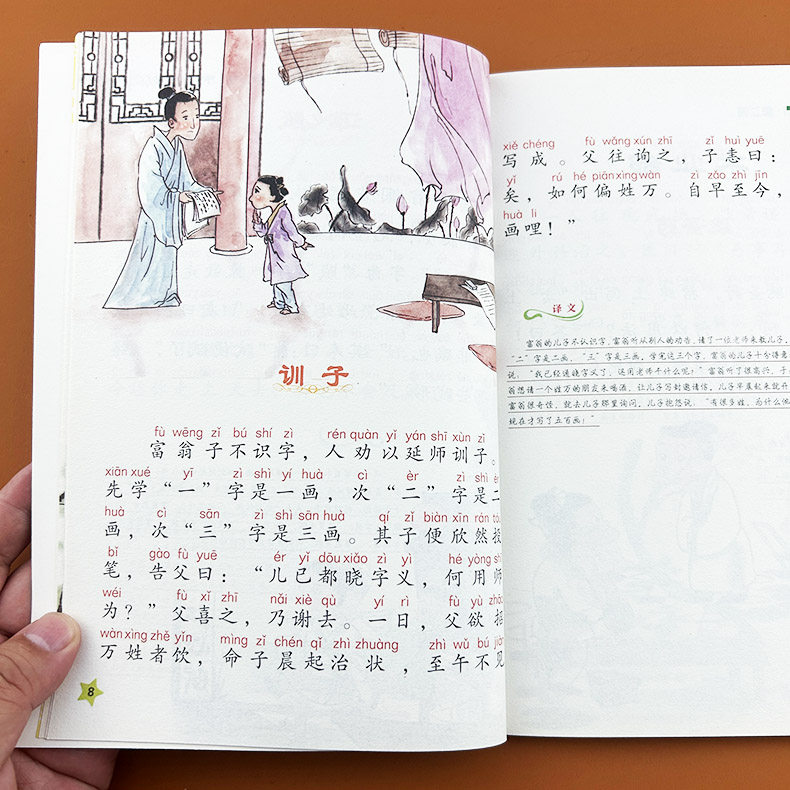 训子
fù wēng zǐ bú shí zì rén quàn yǐ yán shī xùn zǐ
富翁子不识字，人劝以延师训子。
xiān xué yī zì shì yí huà cì èr zì shì
先学“一”字是一画，次“二”字是二
huà cì sān zì shì sān huà qí zǐ biàn xīn rán
画，次“三”字是三画。其子便欣然投
bǐ gào fù yuē ér yǐ dōu xiǎo zì yì hé yòng
笔，告父曰：“儿已都晓字义，何用师
wéi fù xǐ zhī nǎi xiè qù yí rì fù yù
为？”父喜之，乃谢去。一日，父欲招
wàn xìng zhě yǐn mìng zǐ chén qǐ zhì zhuàng zhì wǔ bú
万姓者饮，命子晨起治状，至午不见
8
xiě chéng fù wǎng xún zhī zǐ huì yuē
写成。父往询之，子恚曰：
yǐ rú hé piān xìng wàn zì zǎo zhì jīn
矣，如何偏姓万。自早至今，
huà li
画哩！”
译文
富翁的儿子不认识字，富翁听从别人的劝告，请了一位老师来教儿子，
“二”字是二画，“三”字是三画。学完这三个字，富翁的儿子十分得意
说，“我已经通晓字义了，还用老师干什么呢？”富翁听了很高兴，于
翁想请一个姓万的朋友来喝酒，让儿子写封邀请信。儿子早晨起来就开
富翁很奇怪，就去儿子那里询问。儿子抱怨说：“有很多姓，为什么他
现在才写了五百画！”